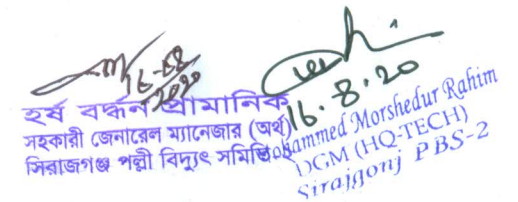 16-08
2020
হর্ষ বর্দ্ধন প্রামানিক
সহকারী জেনারেল ম্যানেজার (অর্থ)
সিরাজগঞ্জ পল্লী বিদ্যুৎ সমিতি
16.8.20
Mohammed Morshedur Rahim
DGM (HQ-TECH)
Sirajgonj PBS-2